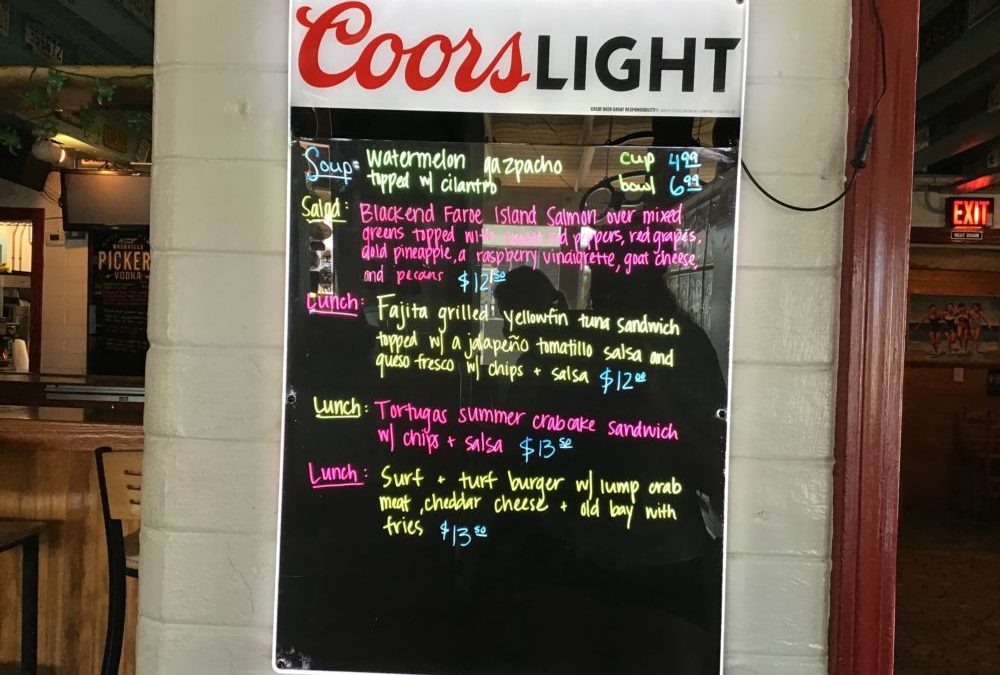 Coors LIGHT
Soup: Watermelon gazpacho cup 4.99
topped w/ cilantro bowl 6.99
Salad: Blackend Faroe Island Salmon over mixed
greens topped with sweet red peppers, red grapes,
gold pineapple, a raspberry vinaigrette, goat cheese,
and pecans $12.50
Lunch: Fajita grilled yellowfin tuna sandwich
topped w/ a jalapeño tomatillo salsa and
queso fresco w/ chips + salsa $12.00
Lunch: Tortugas summer crabcake sandwich
w/ chips + salsa $13.50
Lunch: Surf + turf burger w/ lump crab
meat, cheddar cheese + old bay with
fries $13.50
NASHVILLE
PICKER
VODKA
EXIT